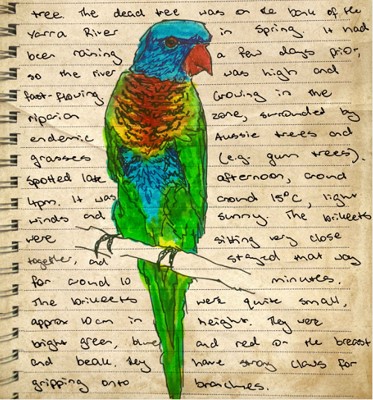 tree. The dead tree was on the bank of the
Yarra River in Spring. It had
been raining a few days prior,
so the river was high and
fast-flowing. Growing in the
riparian zone, surrounded by
endemic Aussie trees and
grasses (e.g. gum trees).
Spotted late afternoon, around
4pm. It was around 15°C, light
winds and sunny. The lorikeets
were sitting very close
together, and stayed that way
for around 10 minutes.
The lorikeets were quite small,
approx 10cm in height. They were
bright green, blue and red on the breast
and beak. They have strong claws for
gripping onto branches.